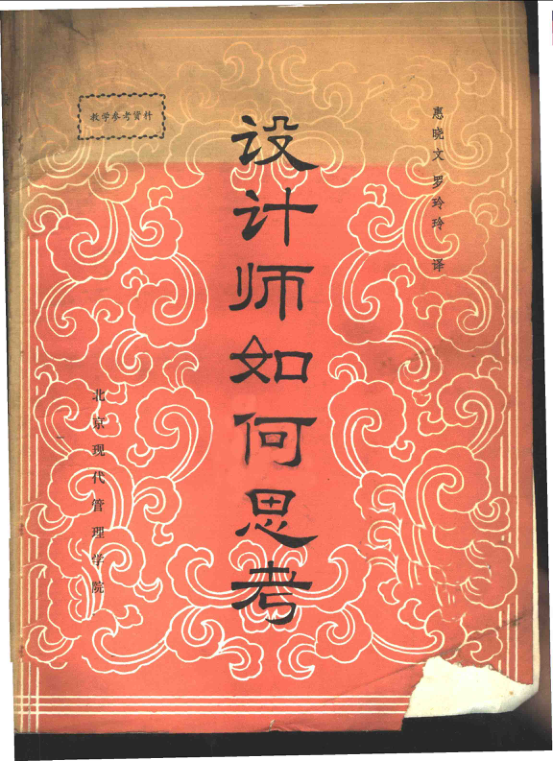 教学参考资料
惠晓文 罗玲玲 译
设计师如何思考
北京现代管理学院